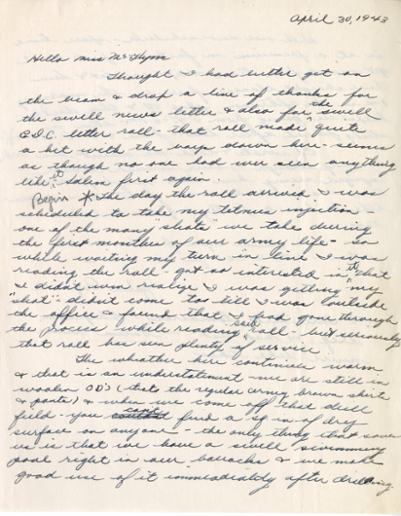 April 30, 1943
Hello Miss McGlynn
Thought I had better get on
the beam & drop a line of thanks for
the swell news letter & also for the swell
letter roll - that roll made quite
a hit with the boys down here - seems
as though no one had ever seen anything
like it
Begin * The day the roll arrived I was
scheduled to take my tetnus injection -
one of the many shots we take during
the first months of our army life - so
while waiting my turn in line I was
reading the roll got so interested in it that
I didn't even realize I was getting my
"shot" - didn't come to till I was outside
the office & found that I had gone through
the process while reading - but seriously
that roll has seen plenty of service
The whather here continues warm
& that is an understatement - we are still in
woolen OD's (thats the regular army brown shirt
& pants) & when we come off that drill
field - you cant find a sq in of dry
surface on anyone - the only thing that saves
us is that we have a swell swimming
pool right in our barracks & we make
good use of it immediatly after drilling